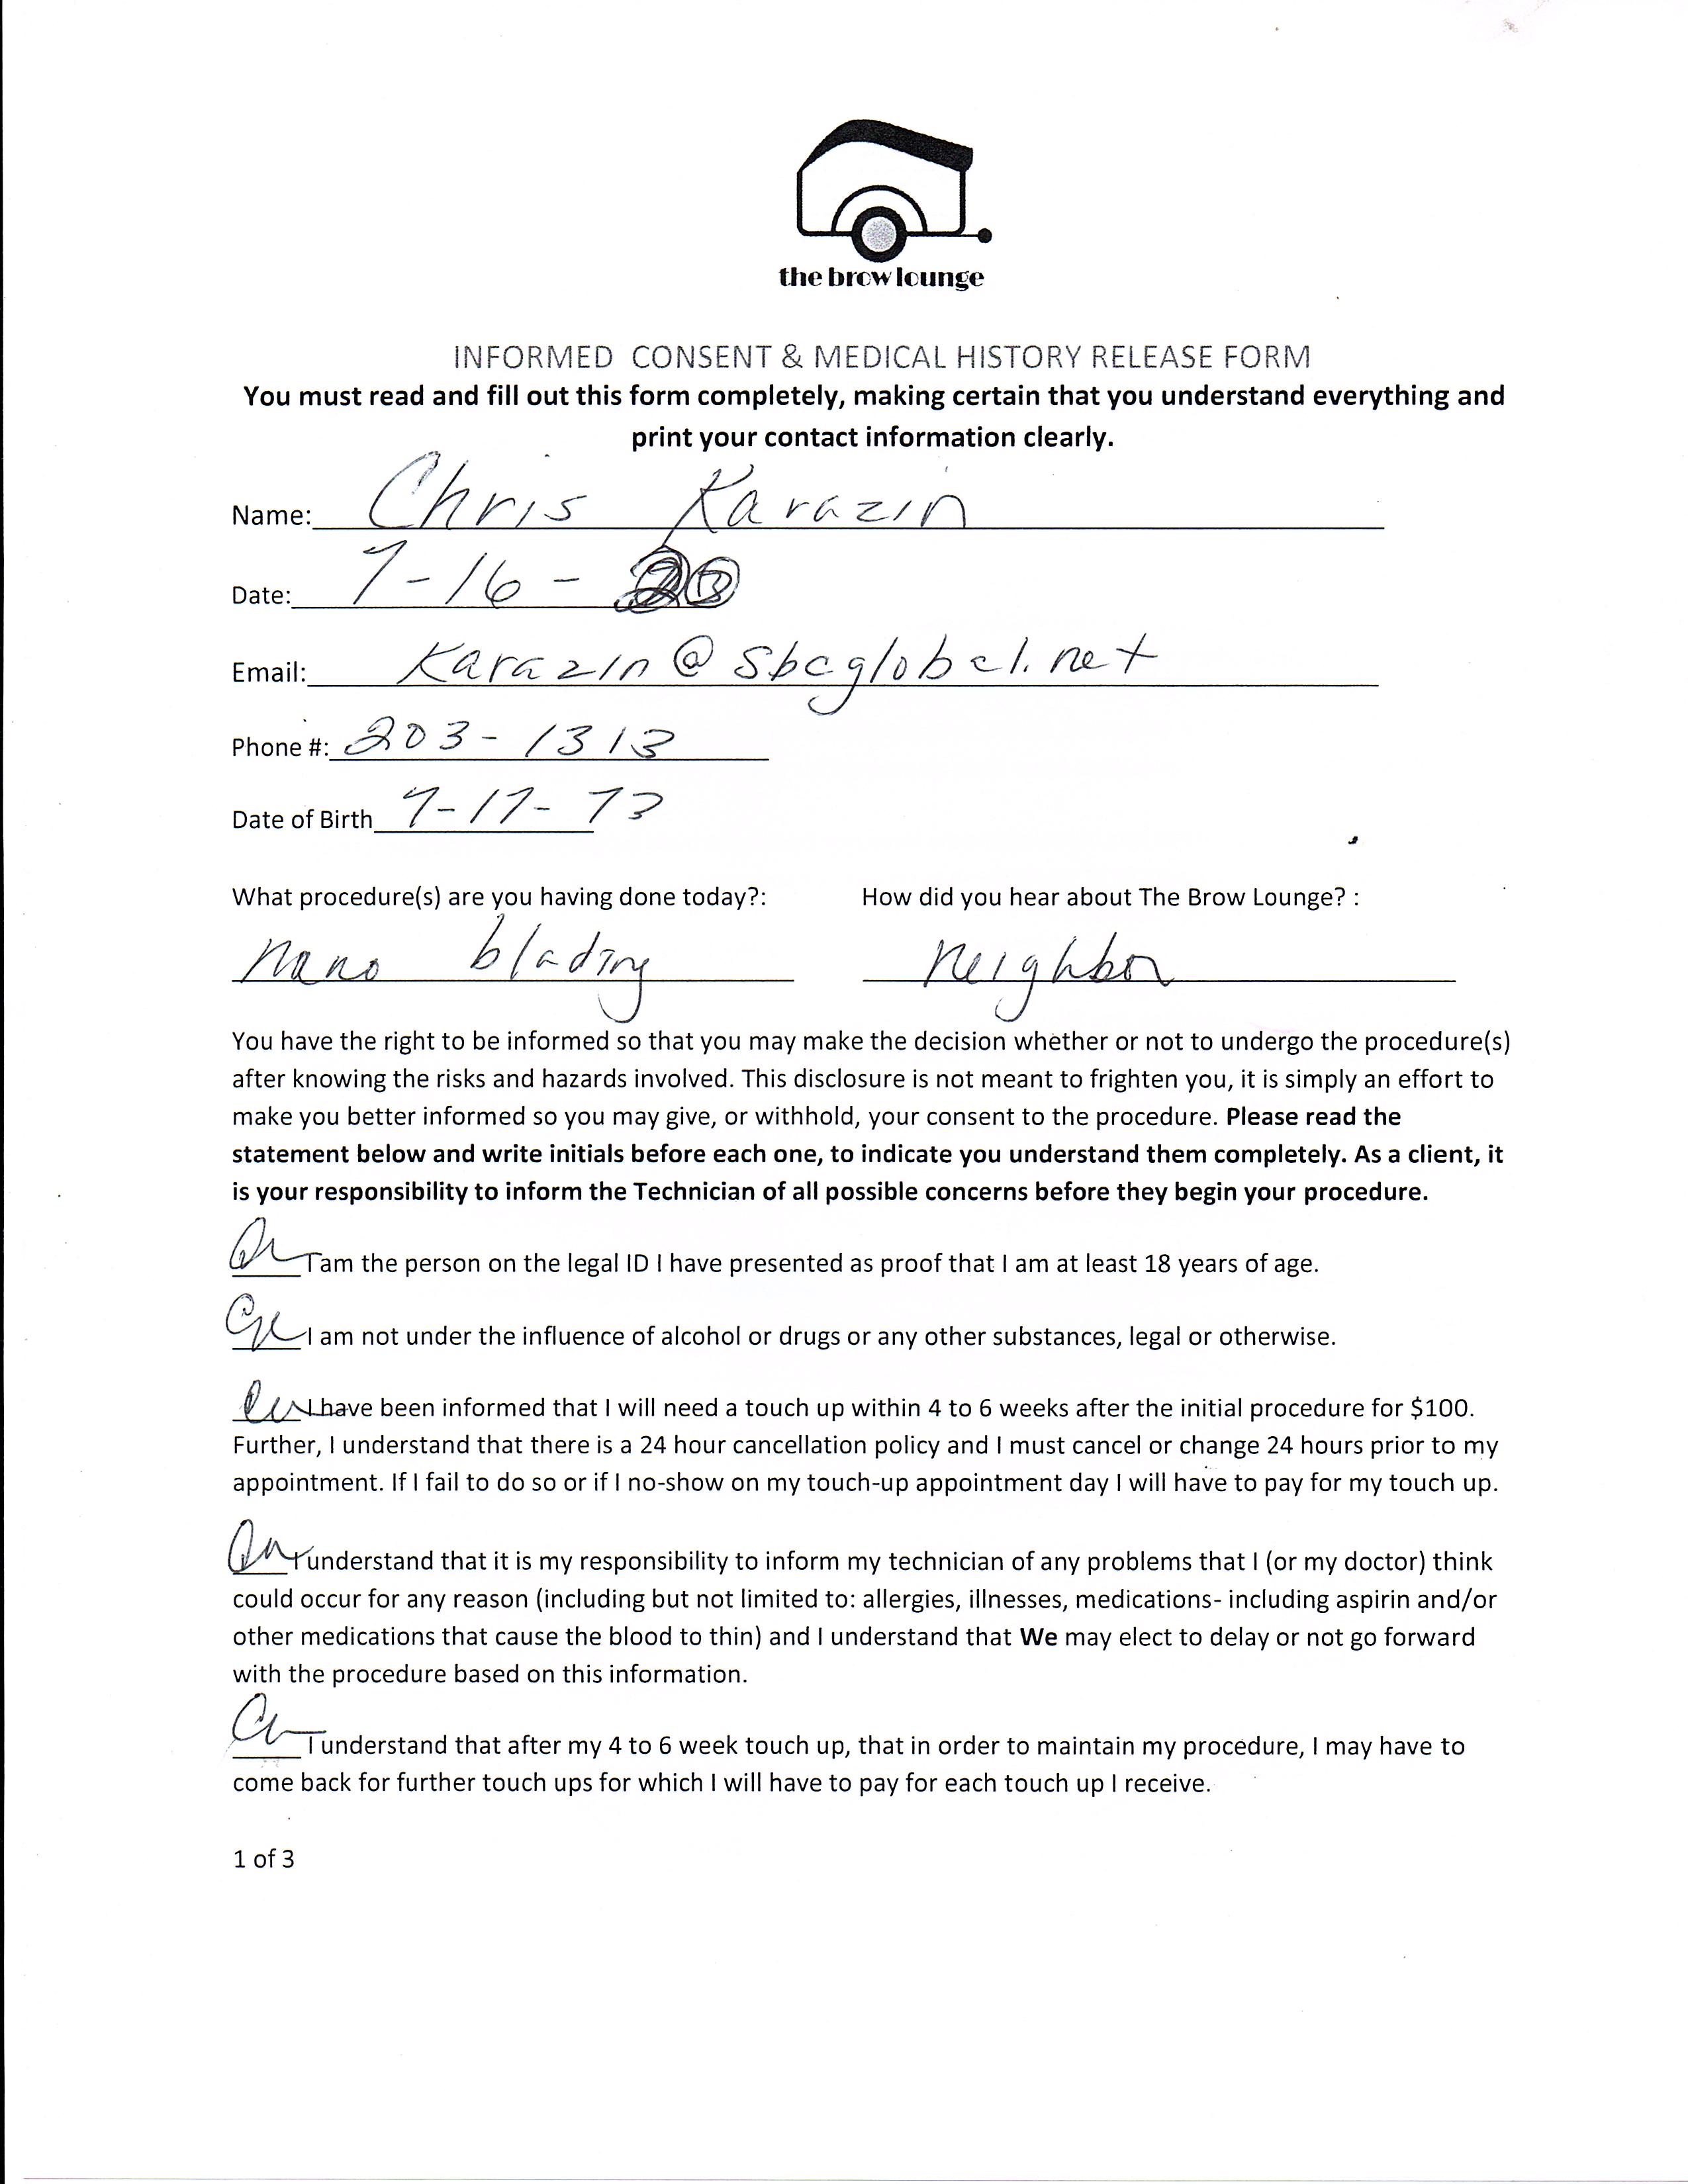 the brow lounge
INFORMED CONSENT & MEDICAL HISTORY RELEASE FORM
You must read and fill out this form completely, making certain that you understand everything and
print your contact information clearly.
Name: Chris Karazin
Date: 7-16-
Email: Karazin@sbcglobal.net
Phone #: 203-1313
Date of Birth 7-17-73
What procedure(s) are you having done today?: How did you hear about The Brow Lounge? :
nano blading neighbor
You have the right to be informed so that you may make the decision whether or not to undergo the procedure(s)
after knowing the risks and hazards involved. This disclosure is not meant to frighten you, it is simply an effort to
make you better informed so you may give, or withhold, your consent to the procedure. Please read the
statement below and write initials before each one, to indicate you understand them completely. As a client, it
is your responsibility to inform the Technician of all possible concerns before they begin your procedure.
I am the person on the legal ID I have presented as proof that I am at least 18 years of age.
I am not under the influence of alcohol or drugs or any other substances, legal or otherwise.
I have been informed that I will need a touch up within 4 to 6 weeks after the initial procedure for $100.
Further, I understand that there is a 24 hour cancellation policy and I must cancel or change 24 hours prior to my
appointment. If I fail to do so or if I no-show on my touch-up appointment day I will have to pay for my touch up.
I understand that it is my responsibility to inform my technician of any problems that I (or my doctor) think
could occur for any reason (including but not limited to: allergies, illnesses, medications- including aspirin and/or
other medications that cause the blood to thin) and I understand that We may elect to delay or not go forward
with the procedure based on this information.
I understand that after my 4 to 6 week touch up, that in order to maintain my procedure, I may have to
come back for further touch ups for which I will have to pay for each touch up I receive.
1 of 3